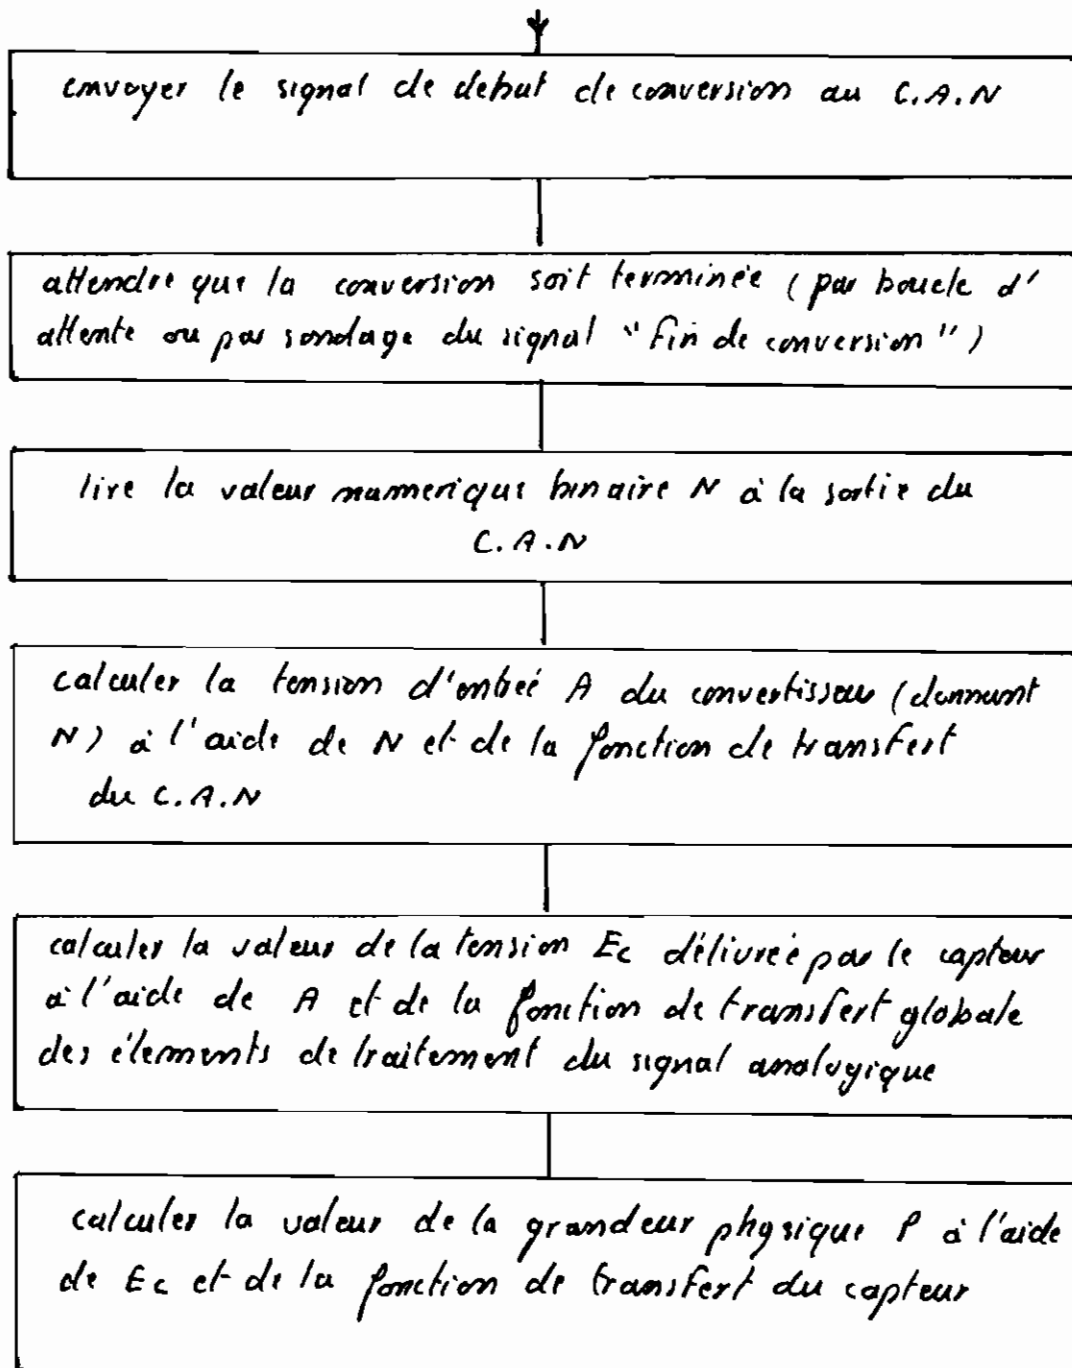 envoyer le signal de debut de conversion au C.A.N
attendre que la conversion soit terminée (par boucle d'
attente ou par sondage du signal "fin de conversion")
lire la valeur numerique binaire N à la sortie du
C.A.N
calculer la tension d'entreé A du convertisseur (donnant
N) à l'aide de N et de la fonction de transfert
du C.A.N
calculer la valeur de la tension Ec délivreé par le capteur
à l'aide de A et de la fonction de transfert globale
des élements de traitement du signal analogique
calculer la valeur de la grandeur physique P à l'aide
de Ec et de la fonction de transfert du capteur